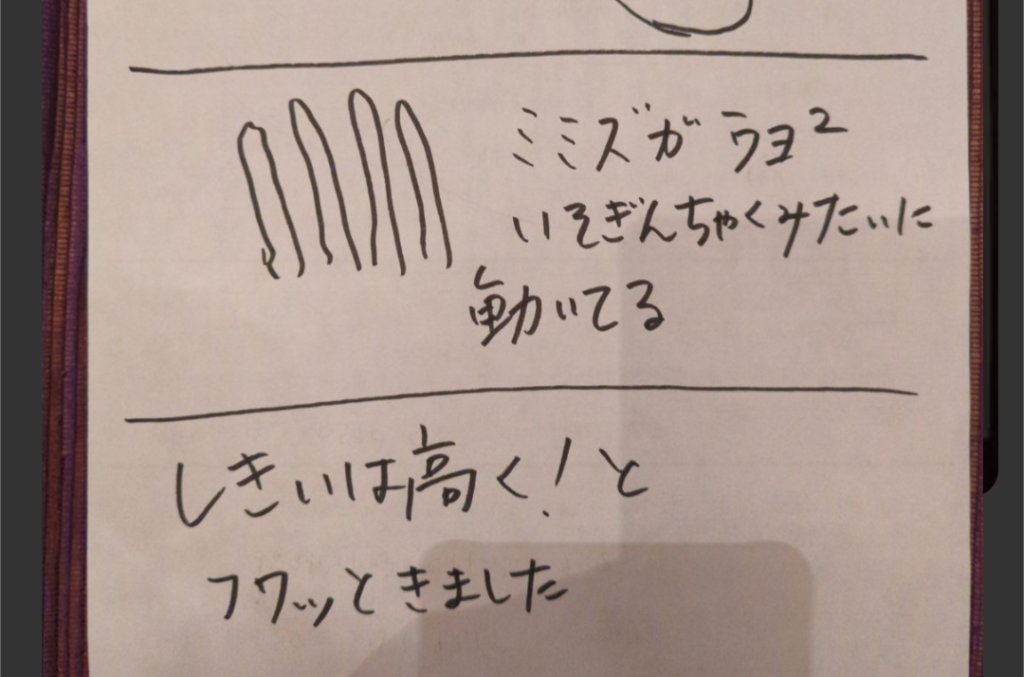 ミミズガウヨ²
いそぎんちゃくみたいに
動いてる
しきいは高く！と
フワッときました